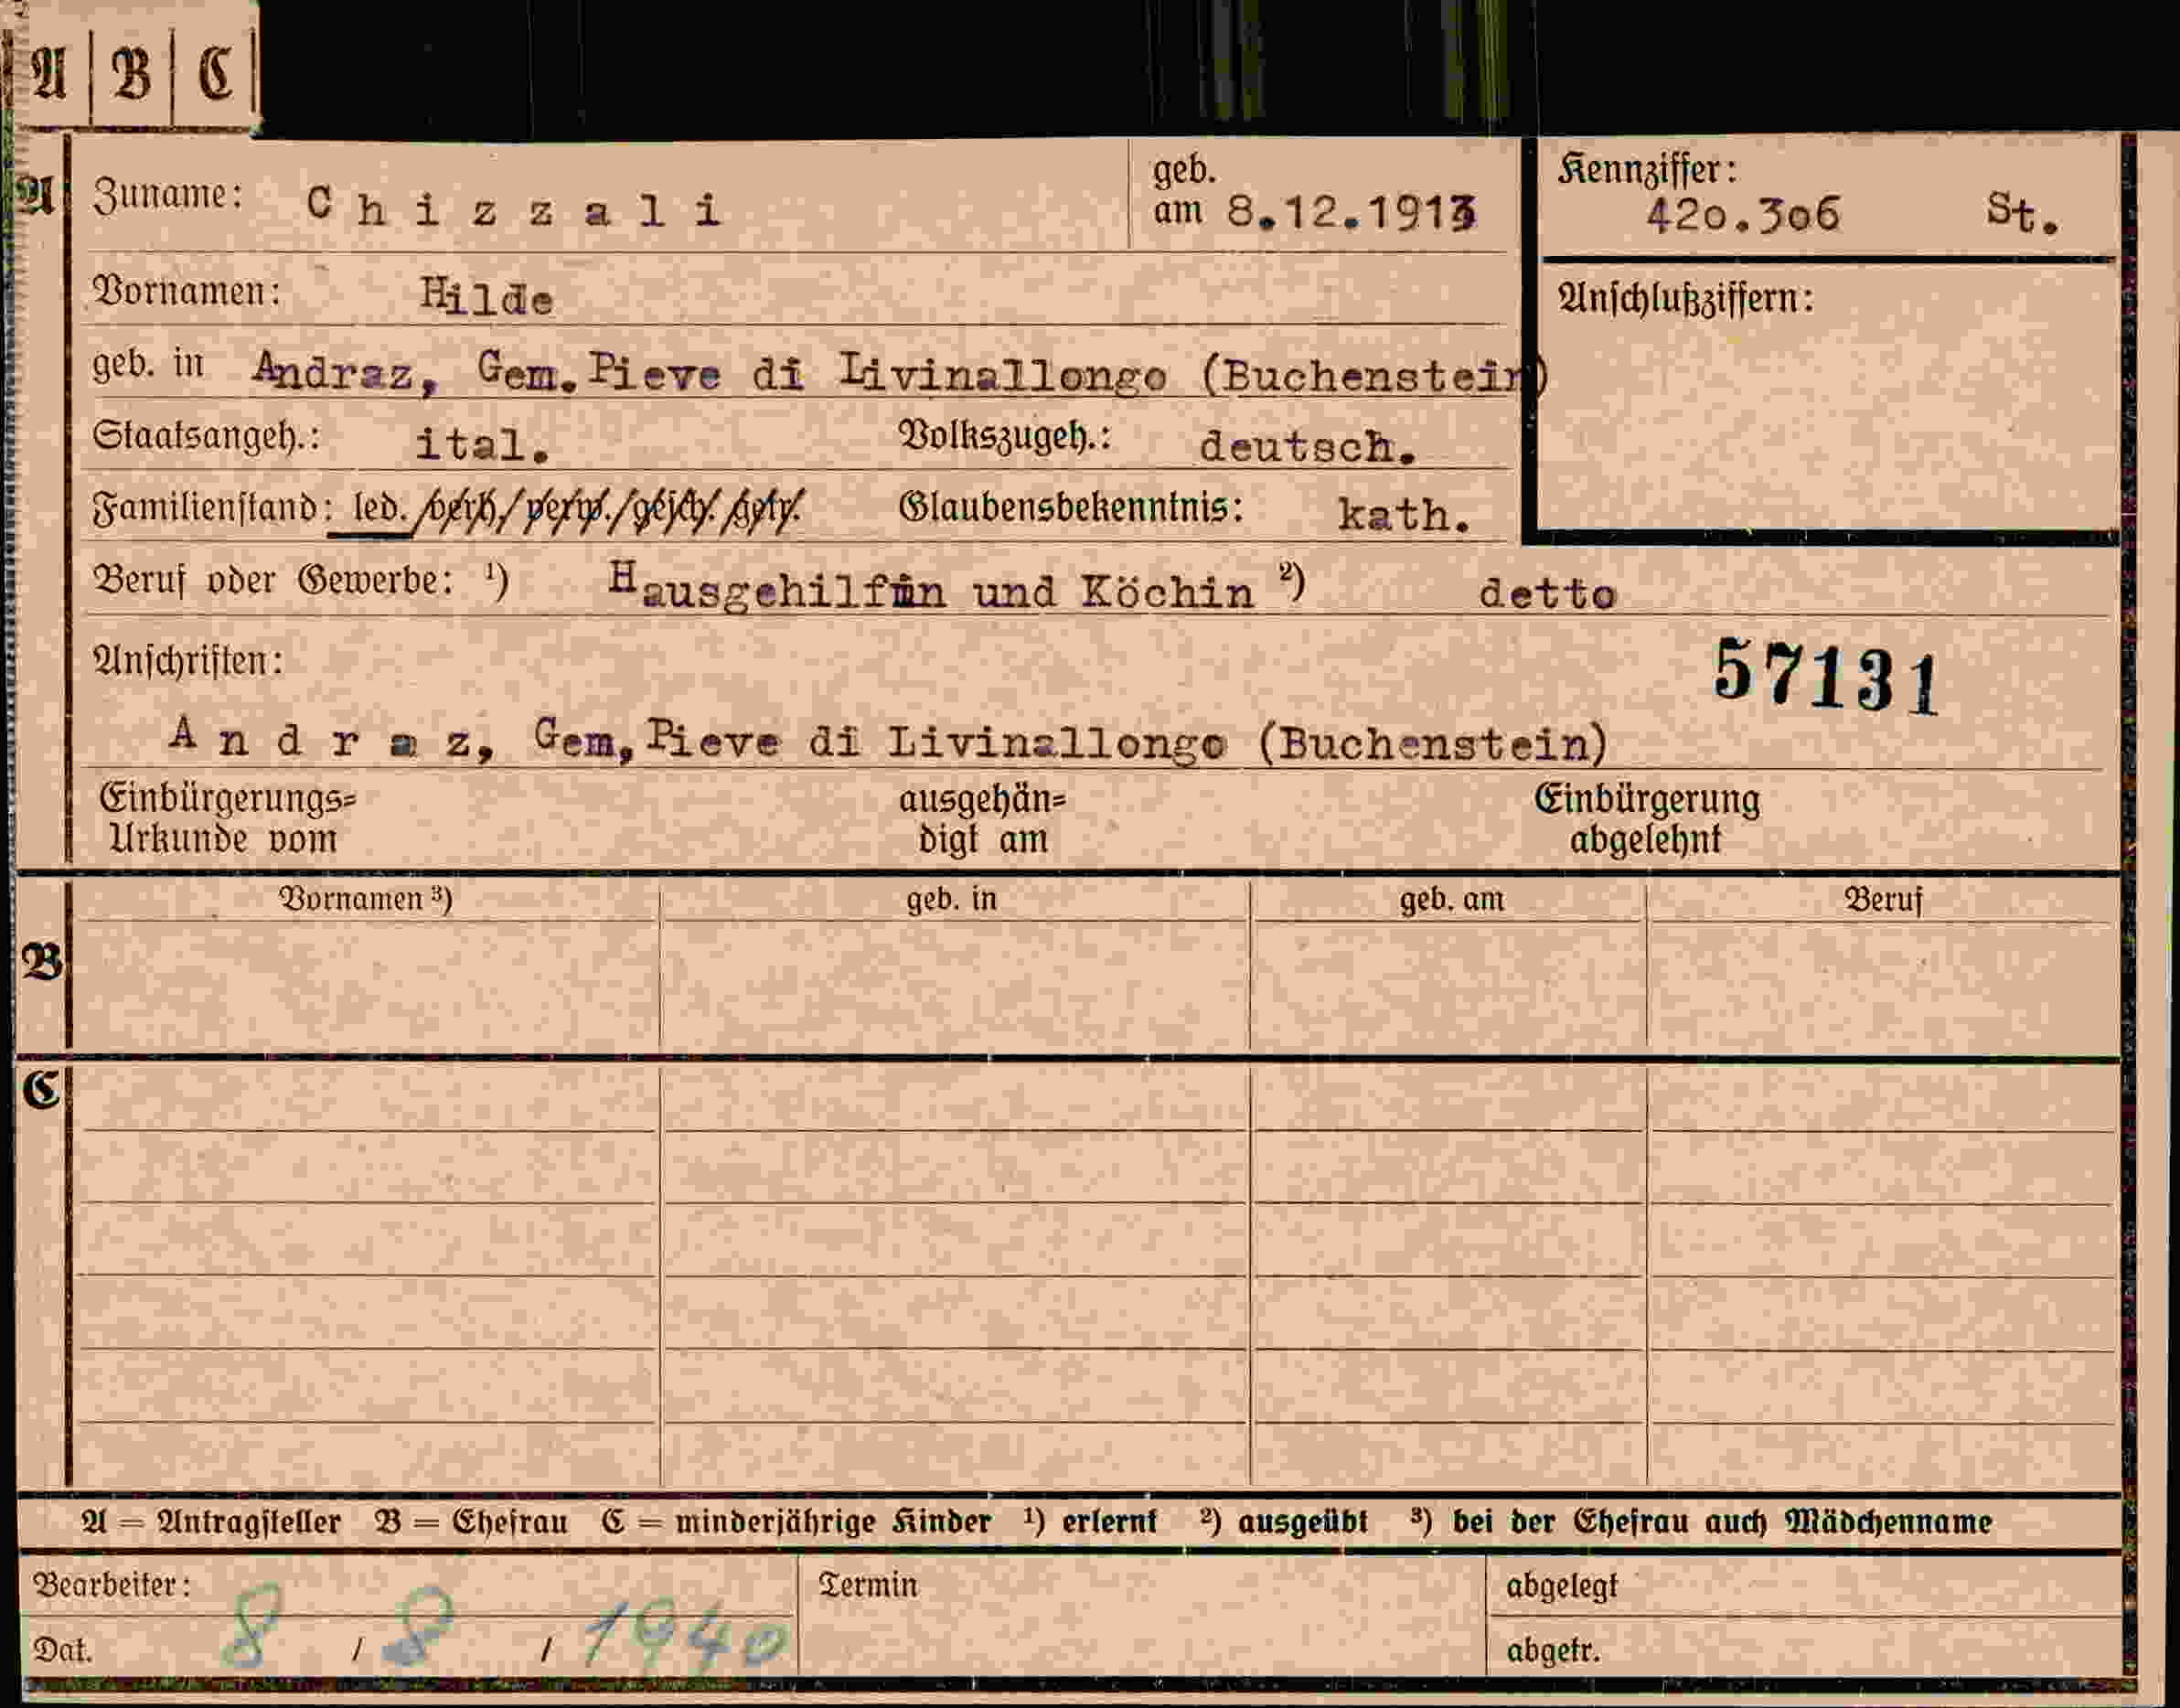 A B C
A Zuname: Chizzali geb. am 8.12.1913 Kennziffer: 420.306 St.
Vornamen: Hilde Anschlußziffern:
geb. in Andraz, Gem. Pieve di Livinallongo (Buchenstein)
Staatsangeh.: ital. Volkszugeh.: deutsch.
Familienstand: led./verh./verw./gesch./getr. Glaubensbekenntnis: kath.
Beruf oder Gewerbe: ¹) Hausgehilfin und Köchin ²) detto
Anschriften: 57131
Andraz, Gem, Pieve di Livinallongo (Buchenstein)
Einbürgerungs= ausgehän= Einbürgerung
Urkunde vom digt am abgelehnt
Vornamen ³) geb. in geb. am Beruf
B
C
A = Antragsteller B = Ehefrau C = minderjährige Kinder ¹) erlernt ²) ausgeübt ³) bei der Ehefrau auch Mädchenname
Bearbeiter: Termin abgelegt
Dat. 8 / 8 / 1940 abgetr.